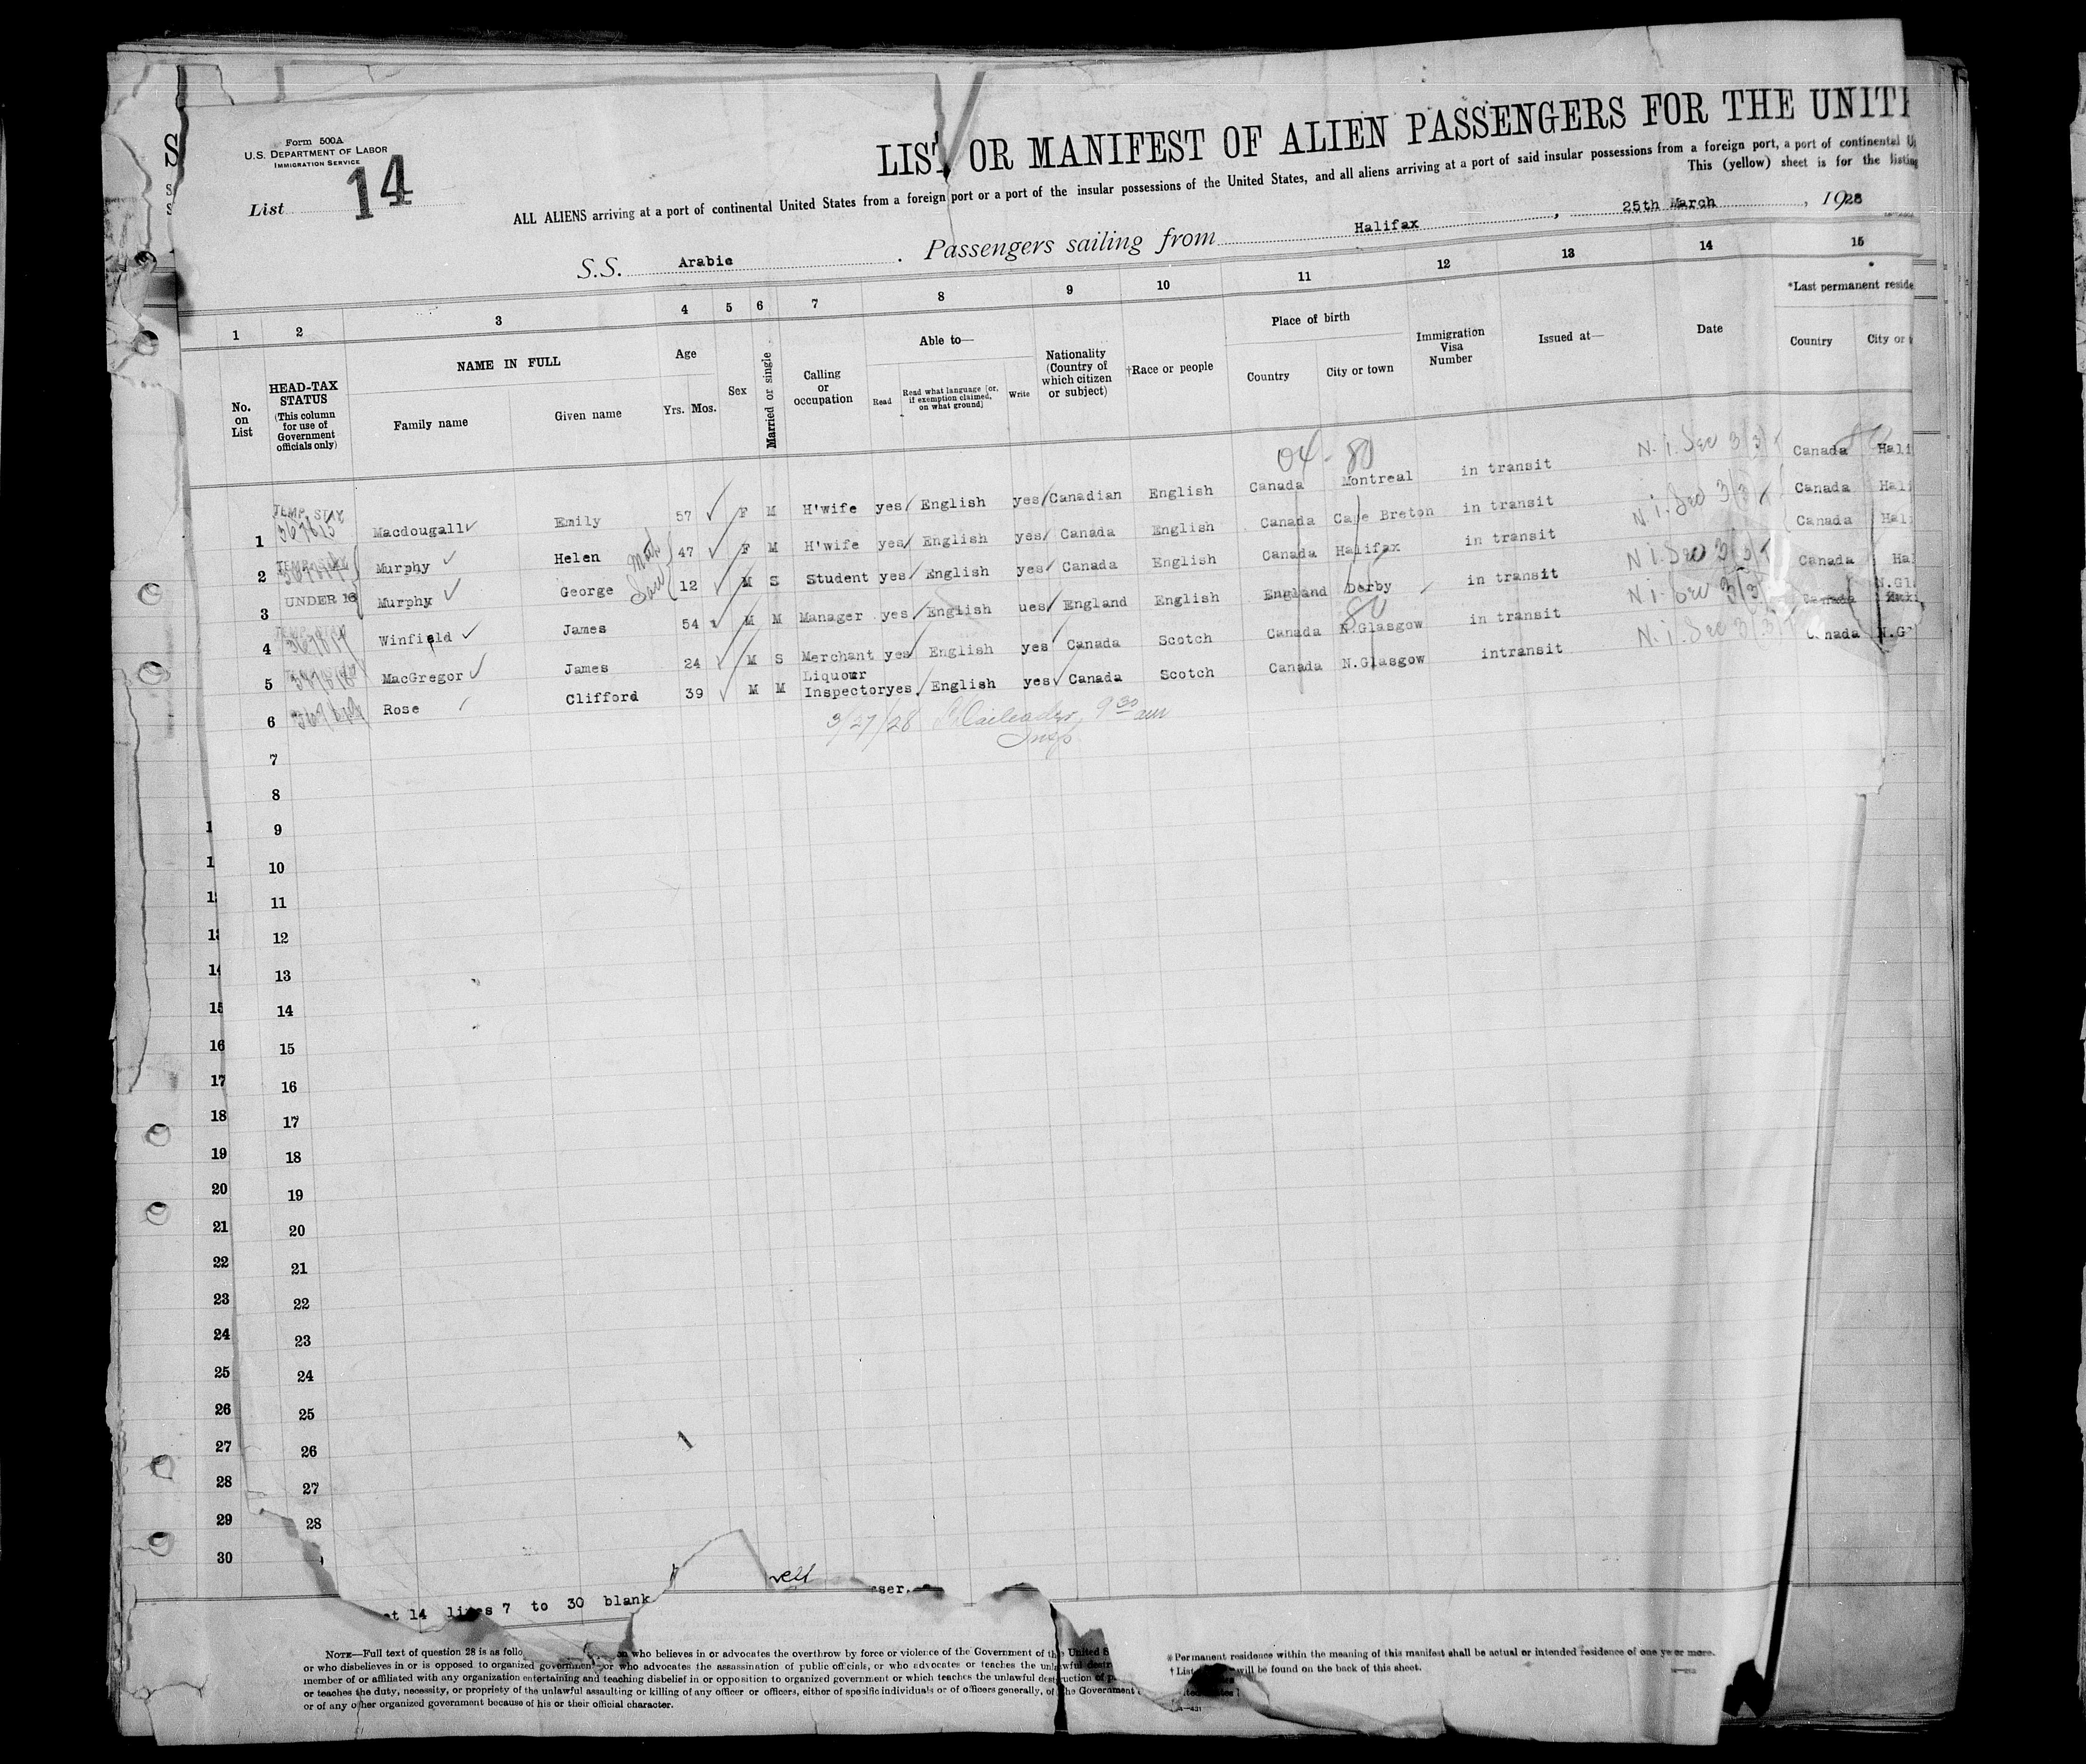 Form 500A
U.S. DEPARTMENT OF LABOR
IMMIGRATION SERVICE
List 14
LIST OR MANIFEST OF ALIEN PASSENGERS FOR THE UNITE
ALL ALIENS arriving at a port of continental United States from a foreign port or a port of the insular possessions of the United States, and all aliens arriving at a port of said insular possessions from a foreign port, a port of continental U
This (yellow) sheet is for the listing
S.S. Arabic . Passengers sailing from Halifax , 25th March , 1928
1 2 3 4 5 6 7 8 9 10 11 12 13 14 15
No. on List
HEAD-TAX STATUS
(This column for use of Government officials only)
NAME IN FULL
Family name Given name
Age
Yrs. Mos.
Sex
Married or single
Calling or occupation
Able to—
Read
Read what language [or, if exemption claimed, on what ground]
Write
Nationality (Country of which citizen or subject)
†Race or people
Place of birth
Country City or town
Immigration Visa Number
Issued at—
Date
*Last permanent reside
Country City or
04 - 80
1 TEMP. STAY Macdougall Emily 57 F M H'wife yes English yes Canadian English Canada Montreal in transit N.i. Sec 3(3) Canada Hali
2 Murphy Helen 47 F M H'wife yes English yes Canada English Canada Cape Breton in transit N.i. Sec 3(3) Canada Hali
3 UNDER 16 Murphy George 12 M S Student yes English yes Canada English Canada Halifax in transit Canada Hal
4 Winfield James 54 M M Manager yes English ues England English England Derby in transit N.i. Sec 3(3) Canada Ha
5 MacGregor James 24 M S Merchant yes English yes Canada Scotch Canada N.Glasgow in transit N.i. Sec 3(3) Canada N.Gl
6 Rose Clifford 39 M M Liquour Inspector yes English yes Canada Scotch Canada N.Glasgow intransit N.i. Sec 3(3) Canada N.G
3/27/28 9 30 am
Insp
7
8
9
10
11
12
13
14
15
16
17
18
19
20
21
22
23
24
25
26
27
28
14
15
16
17
18
19
20
21
22
23
24
25
26
27
28
29
30
14 lines 7 to 30 blank
NOTE—Full text of question 28 is as follo who believes in or advocates the overthrow by force or violence of the Government of the United S
or who disbelieves in or is opposed to organized government, or who advocates the assassination of public officials, or who advocates or teaches the unlawful destr
member of or affiliated with any organization entertaining and teaching disbelief in or opposition to organized government or which teaches the unlawful destruction of p
or teaches the duty, necessity, or propriety of the unlawful assaulting or killing of any officer or officers, either of specific individuals or of officers generally, of the Government
or of any other organized government because of his or their official character.
* Permanent residence within the meaning of this manifest shall be actual or intended residence of one year or more.
† List will be found on the back of this sheet.